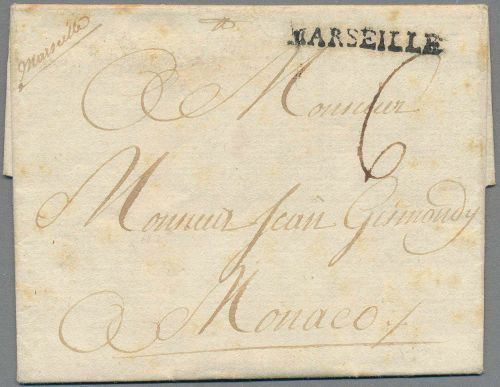 Marseille
MARSEILLE
A Monsieur
6
Monsieur Jean Gismondy
A Monaco /.